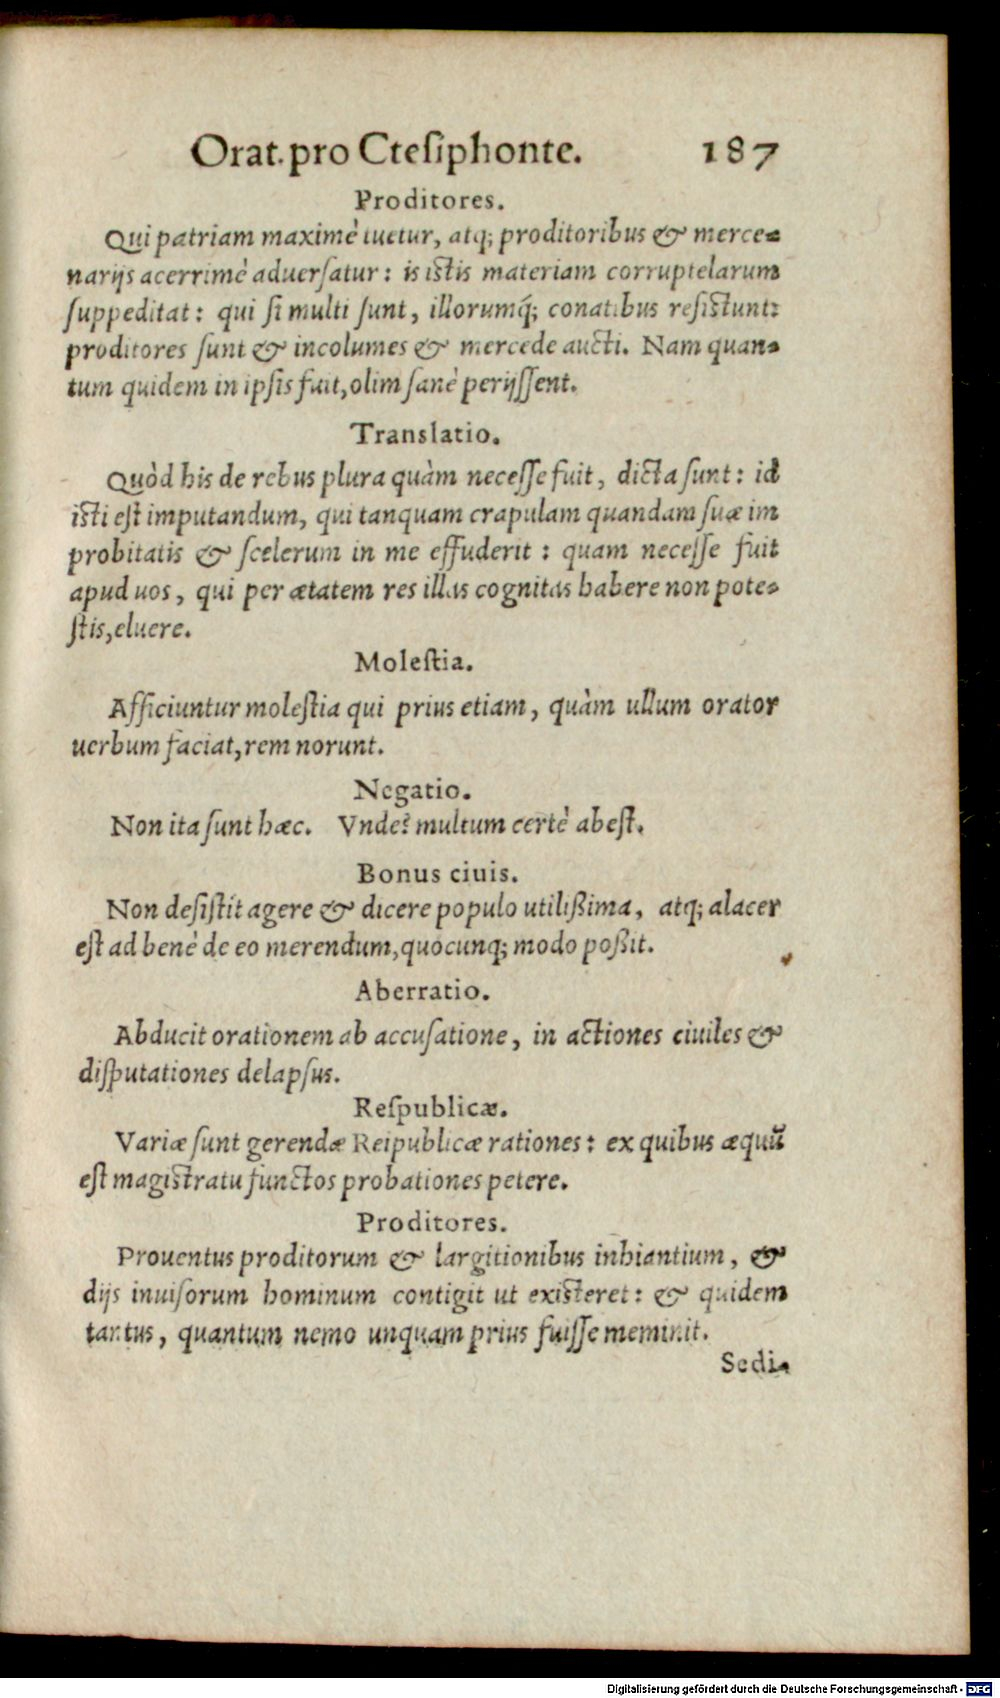 Orat. pro Cteſiphonte. 187
Proditores.
Qui patriam maximè tuetur, atq; proditoribus & merce=
narijs acerrimè aduerſatur: is istis materiam corruptelarum
ſuppeditat: qui ſi multi ſunt, illorumq́; conatibus reſistunt:
proditores ſunt & incolumes & mercede aucti. Nam quan=
tum quidem in ipſis fuit, olim ſanè perijſſent.
Translatio.
Quòd his de rebus plura quàm neceſſe fuit, dicta ſunt: id
isti eſt imputandum, qui tanquam crapulam quandam ſuæ im
probitatis & ſcelerum in me effuderit: quam neceſſe fuit
apud uos, qui per ætatem res illas cognitas habere non pote=
ſtis, eluere.
Moleſtia.
Afficiuntur moleſtia qui prius etiam, quàm ullum orator
uerbum faciat, rem norunt.
Negatio.
Non ita ſunt hæc. Vnde? multum certè abeſt.
Bonus ciuis.
Non deſiſtit agere & dicere populo utilißima, atq; alacer
eſt ad benè de eo merendum, quocunq; modo poßit.
Aberratio.
Abducit orationem ab accuſatione, in actiones ciuiles &
diſputationes delapſus.
Reſpublicæ.
Variæ ſunt gerendæ Reipublicæ rationes: ex quibus æquũ
eſt magistratu functos probationes petere.
Proditores.
Prouentus proditorum & largitionibus inhiantium, &
dijs inuiſorum hominum contigit ut existeret: & quidem
tantus, quantum nemo unquam prius fuiſſe meminit.
Sedi=
Digitalisierung gefördert durch die Deutsche Forschungsgemeinschaft - DFG